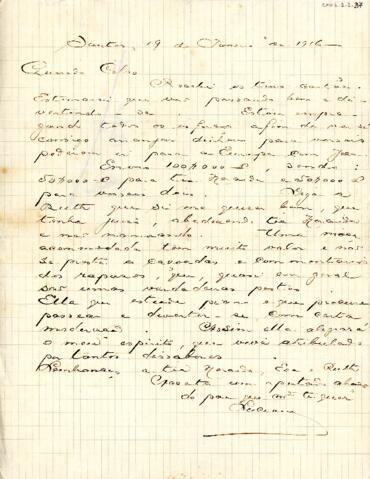 Santos, 19 de Janeiro de 1916
Querido Celso
Recebi os teus cartões.
Estimarei que vás passando bem e di-
vertindo-se. Estou empre-
gando todos os esforços afim de ver si
consigo arranjar dinheiro para vocês
poderem ir para a Europa com
Envio 100$000, sendo:
50$000 para tia e 50$000
para vocês dois. Diga a
Ruth que si me quizer bem, que
tenha juizo, obedecendo tia
e não namorando. Uma moça
acommodada tem muito valor e não
se presta a caçoadas e commentarios
dos rapazes, que, quasi em geral
são umas verdadeiras pestes.
Ella que estude piano e que procure
passear e divertir-se, com certa
moderação. Assim ella alegrará
o meu espirito, que vive atribulado
por tantos dissabores.
Lembranças a tia, e Ruth
Aceita um apertado abraço
do pae que te quer